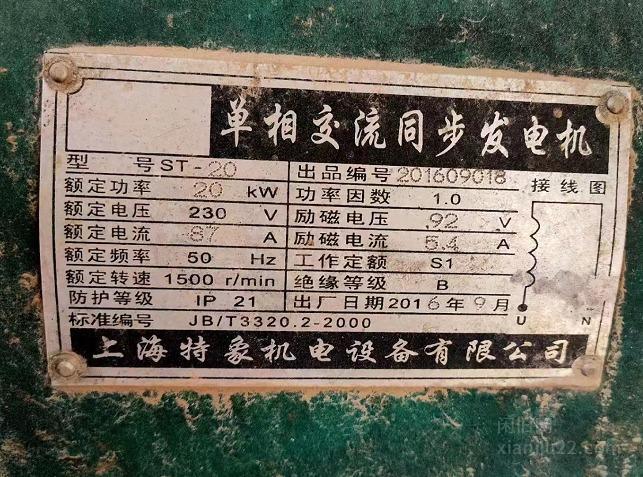 单相交流同步发电机
型 号 ST-20 出品编号 201609018 接线图
额定功率 20 kW 功率因数 1.0
额定电压 230 V 励磁电压 92 V
额定电流 87 A 励磁电流 5.4 A
额定频率 50 Hz 工作定额 S1
额定转速 1500 r/min 绝缘等级 B
防护等级 IP 21 出厂日期 2016年9月
U N
标准编号 JB/T3320.2-2000
上海特象机电设备有限公司